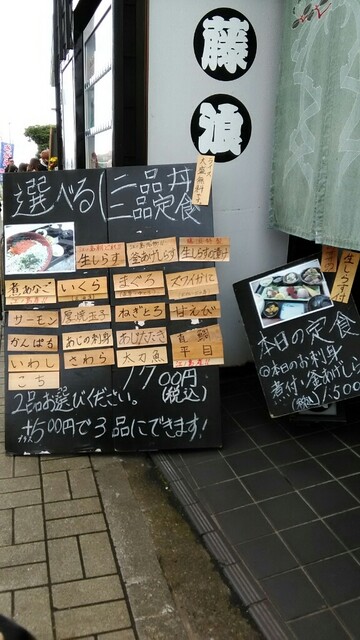 藤
浪
大盛無料です
選べる 二品丼
二品定食
生しらす
釜あげしらす
生しらす沖漬け
煮あなご
いくら
まぐろ
ズワイがに
サーモン
厚焼玉子
ねぎとろ
甘えび
かんぱち
あじの刺身
あじたたき
平目
いわし
さわら
太刀魚
こち
1700円(税込)
2品お選びください。
+500円で3品にできます!
生しらす付
本日の定食
◎本日のお刺身
煮付・釜あげしらす
(税込)1,500